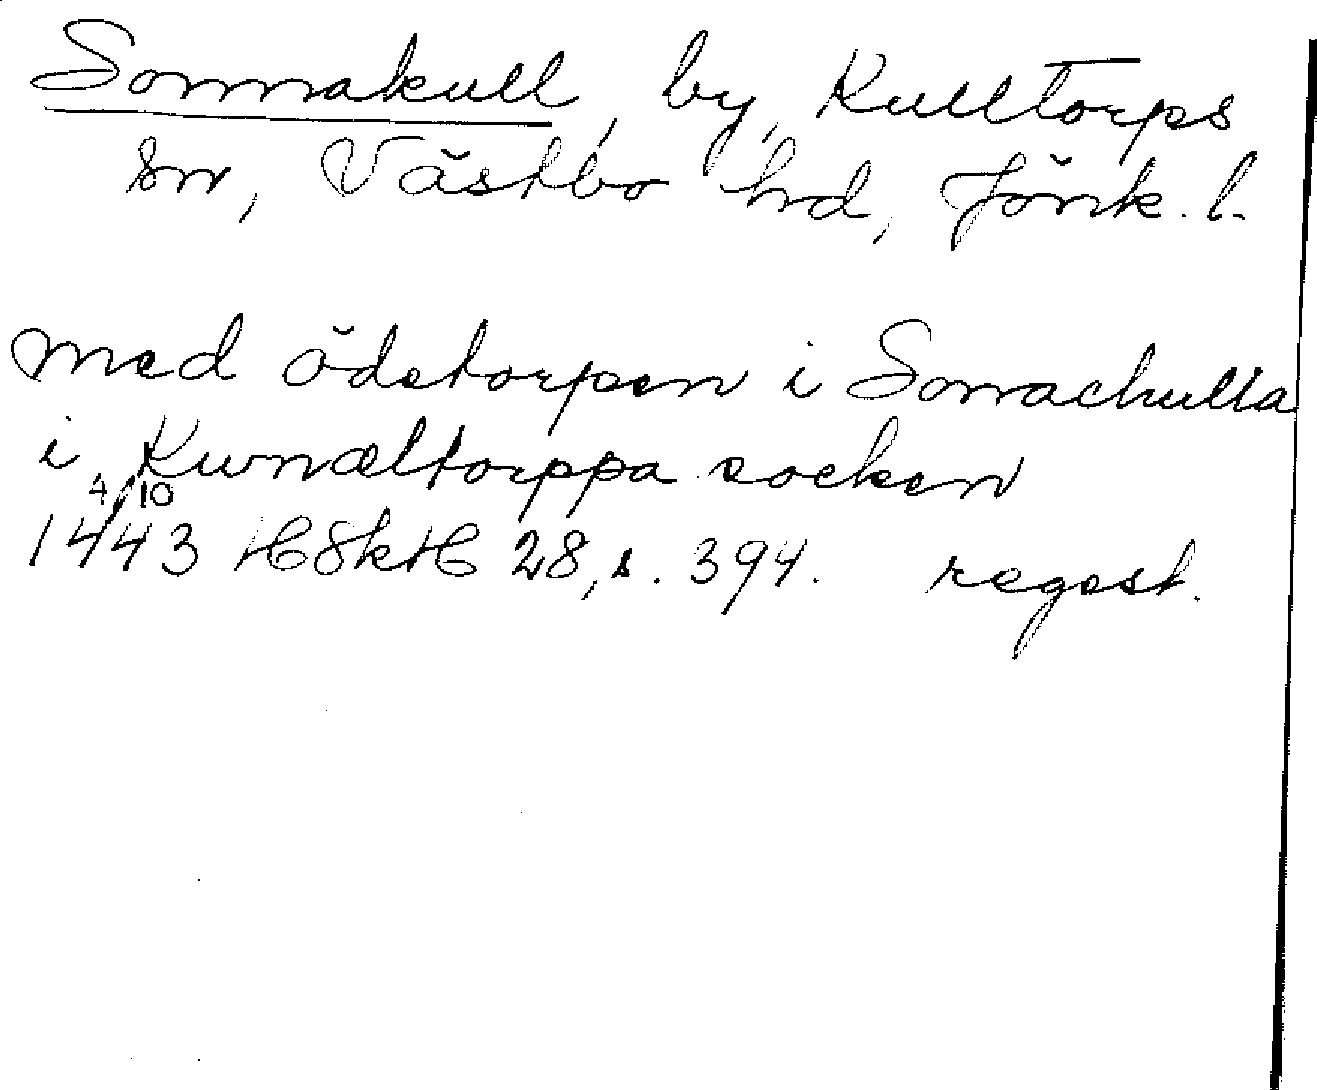 Sonnakull, by, Kulltorps
sn, Västbo hd, Jönk. l.
med ödetorpen i Sonnachulla
i Kunnæltorppa socken
1443 4/10 HSkH 28, s. 394. regest.